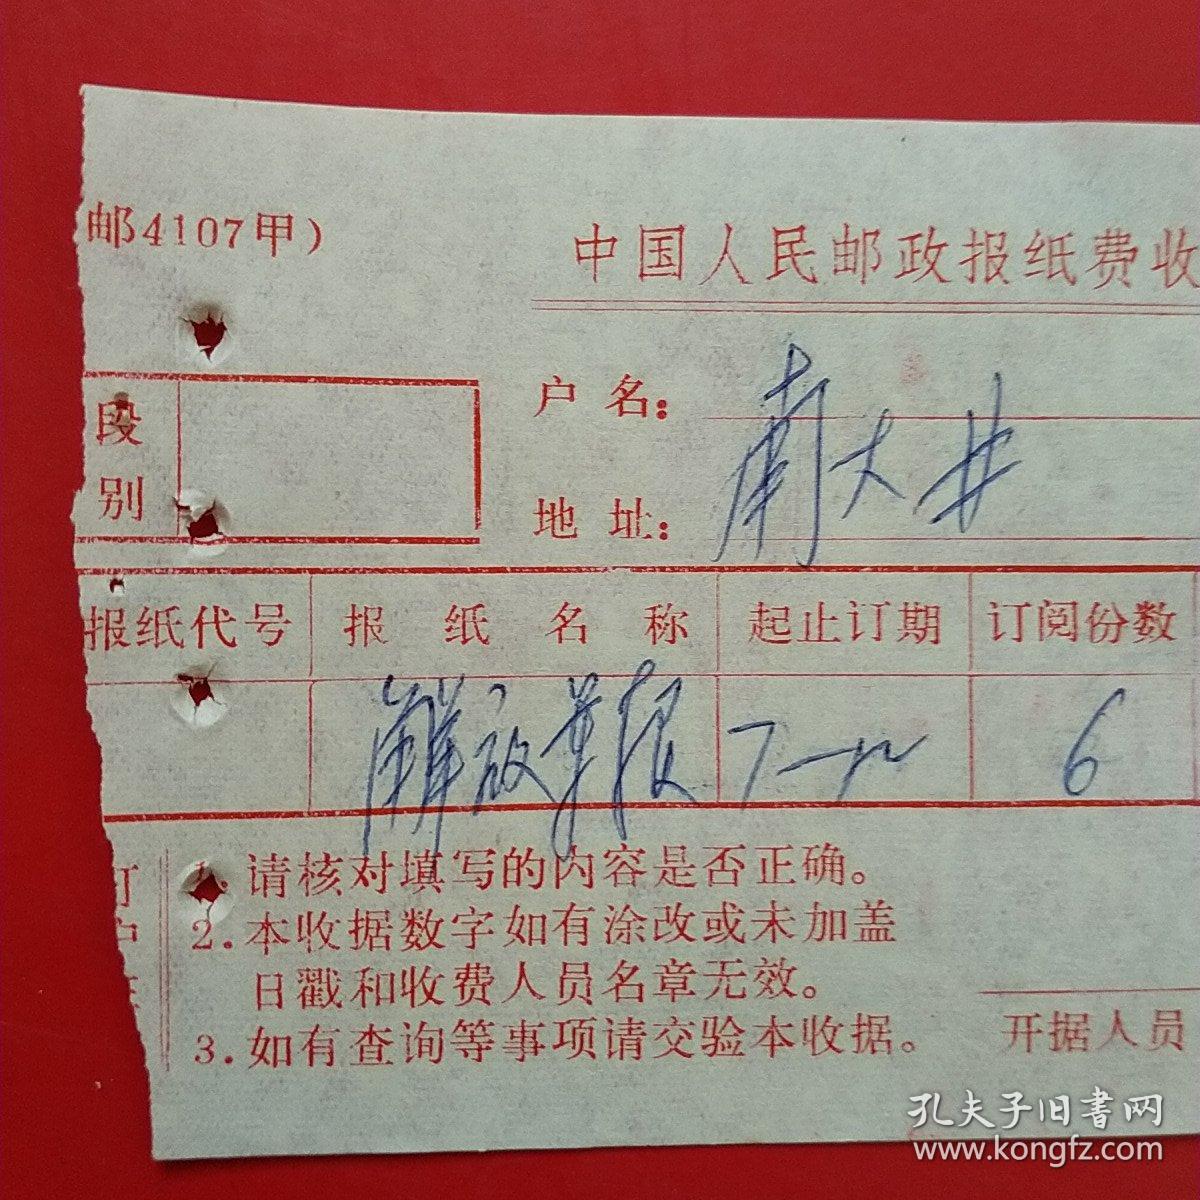 邮4107甲)
中国人民邮政报纸费收
户名:
南大井
地址:
段别
报纸代号 报纸名称 起止订期 订阅份数
解放军报 7—12 6
1. 请核对填写的内容是否正确。
2. 本收据数字如有涂改或未加盖
日戳和收费人员名章无效。
3. 如有查询等事项请交验本收据。
开据人员
孔夫子旧书网
www.kongfz.com